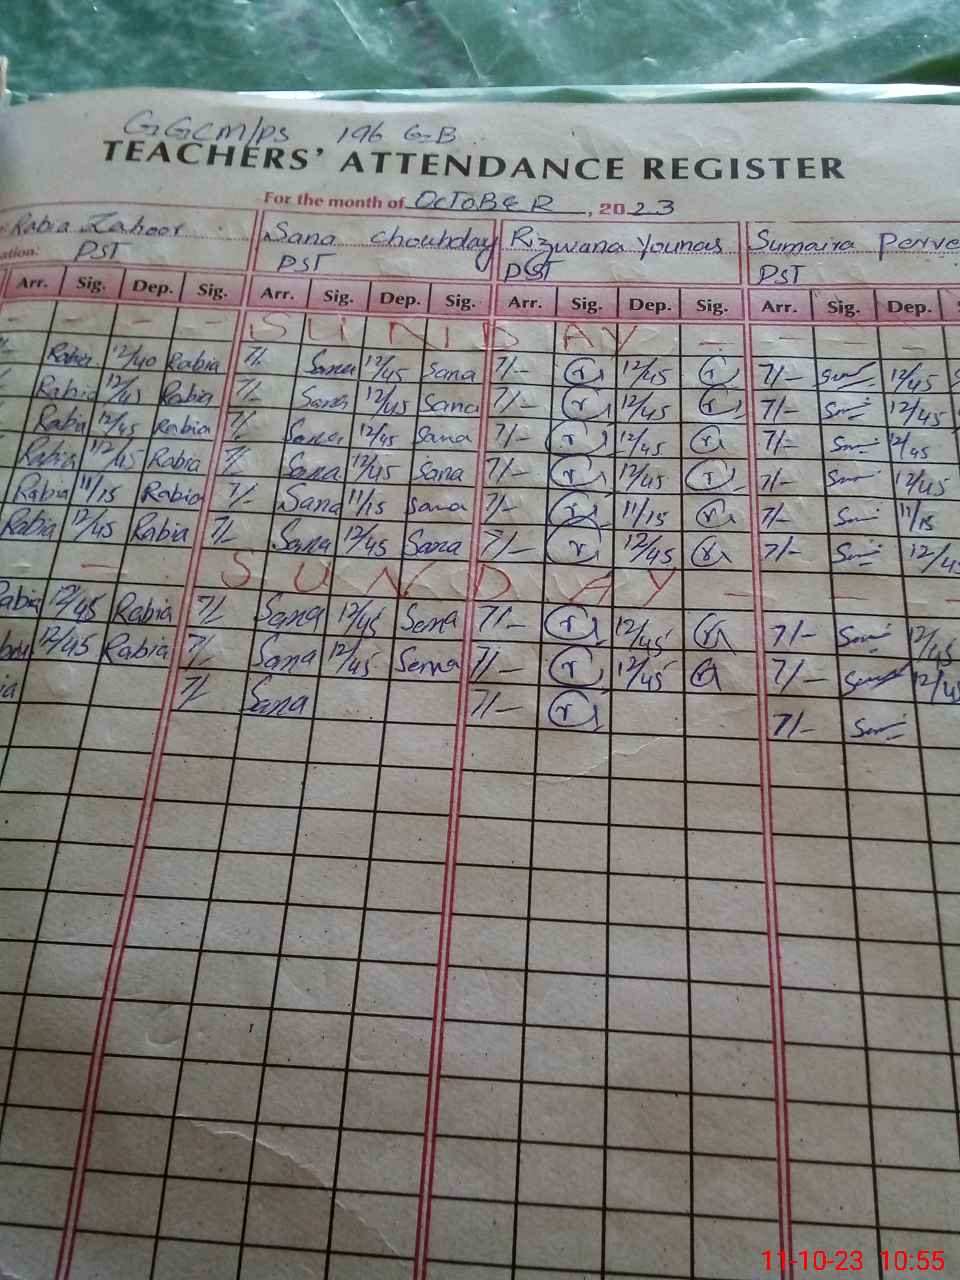 GGCM/PS 196 GB
TEACHERS' ATTENDANCE REGISTER
For the month of OCTOBER, 2023
Rabia Zahoor Sana Chouhday Rizwana Younas Sumaira Perve
ation: PST PST PST PST
Arr. Sig. Dep. Sig. Arr. Sig. Dep. Sig. Arr. Sig. Dep. Sig. Arr. Sig. Dep. S
- - - - SUNDAY - - - -
Rabia 12/40 Rabia 7/- Sana 12/45 Sana 7/- r 12/45 r 7/- 12/45
Rabia 12/45 Rabia 7/- Sana 12/45 Sana 7/- r 12/45 r 7/- 12/45
Rabia 12/45 Rabia 7/- Sana 12/45 Sana 7/- r 12/45 r 7/- 12/45
Rabia 12/45 Rabia 7/- Sana 12/45 Sana 7/- r 12/45 r 7/- 12/45
Rabia 11/15 Rabia 7/- Sana 11/15 Sana 7/- r 11/15 r 7/- 11/15
Rabia 12/45 Rabia 7/- Sana 12/45 Sana 7/- r 12/45 r 7/- 12/45
- - SUNDAY - - - -
Rabia 12/45 Rabia 7/- Sana 12/45 Sana 7/- r 12/45 r 7/- 12/45
12/45 Rabia 7/- Sana 12/45 Sana 7/- r 12/45 r 7/- 12/45
ia 7/- Sana 7/- r 7/-
11-10-23 10:55